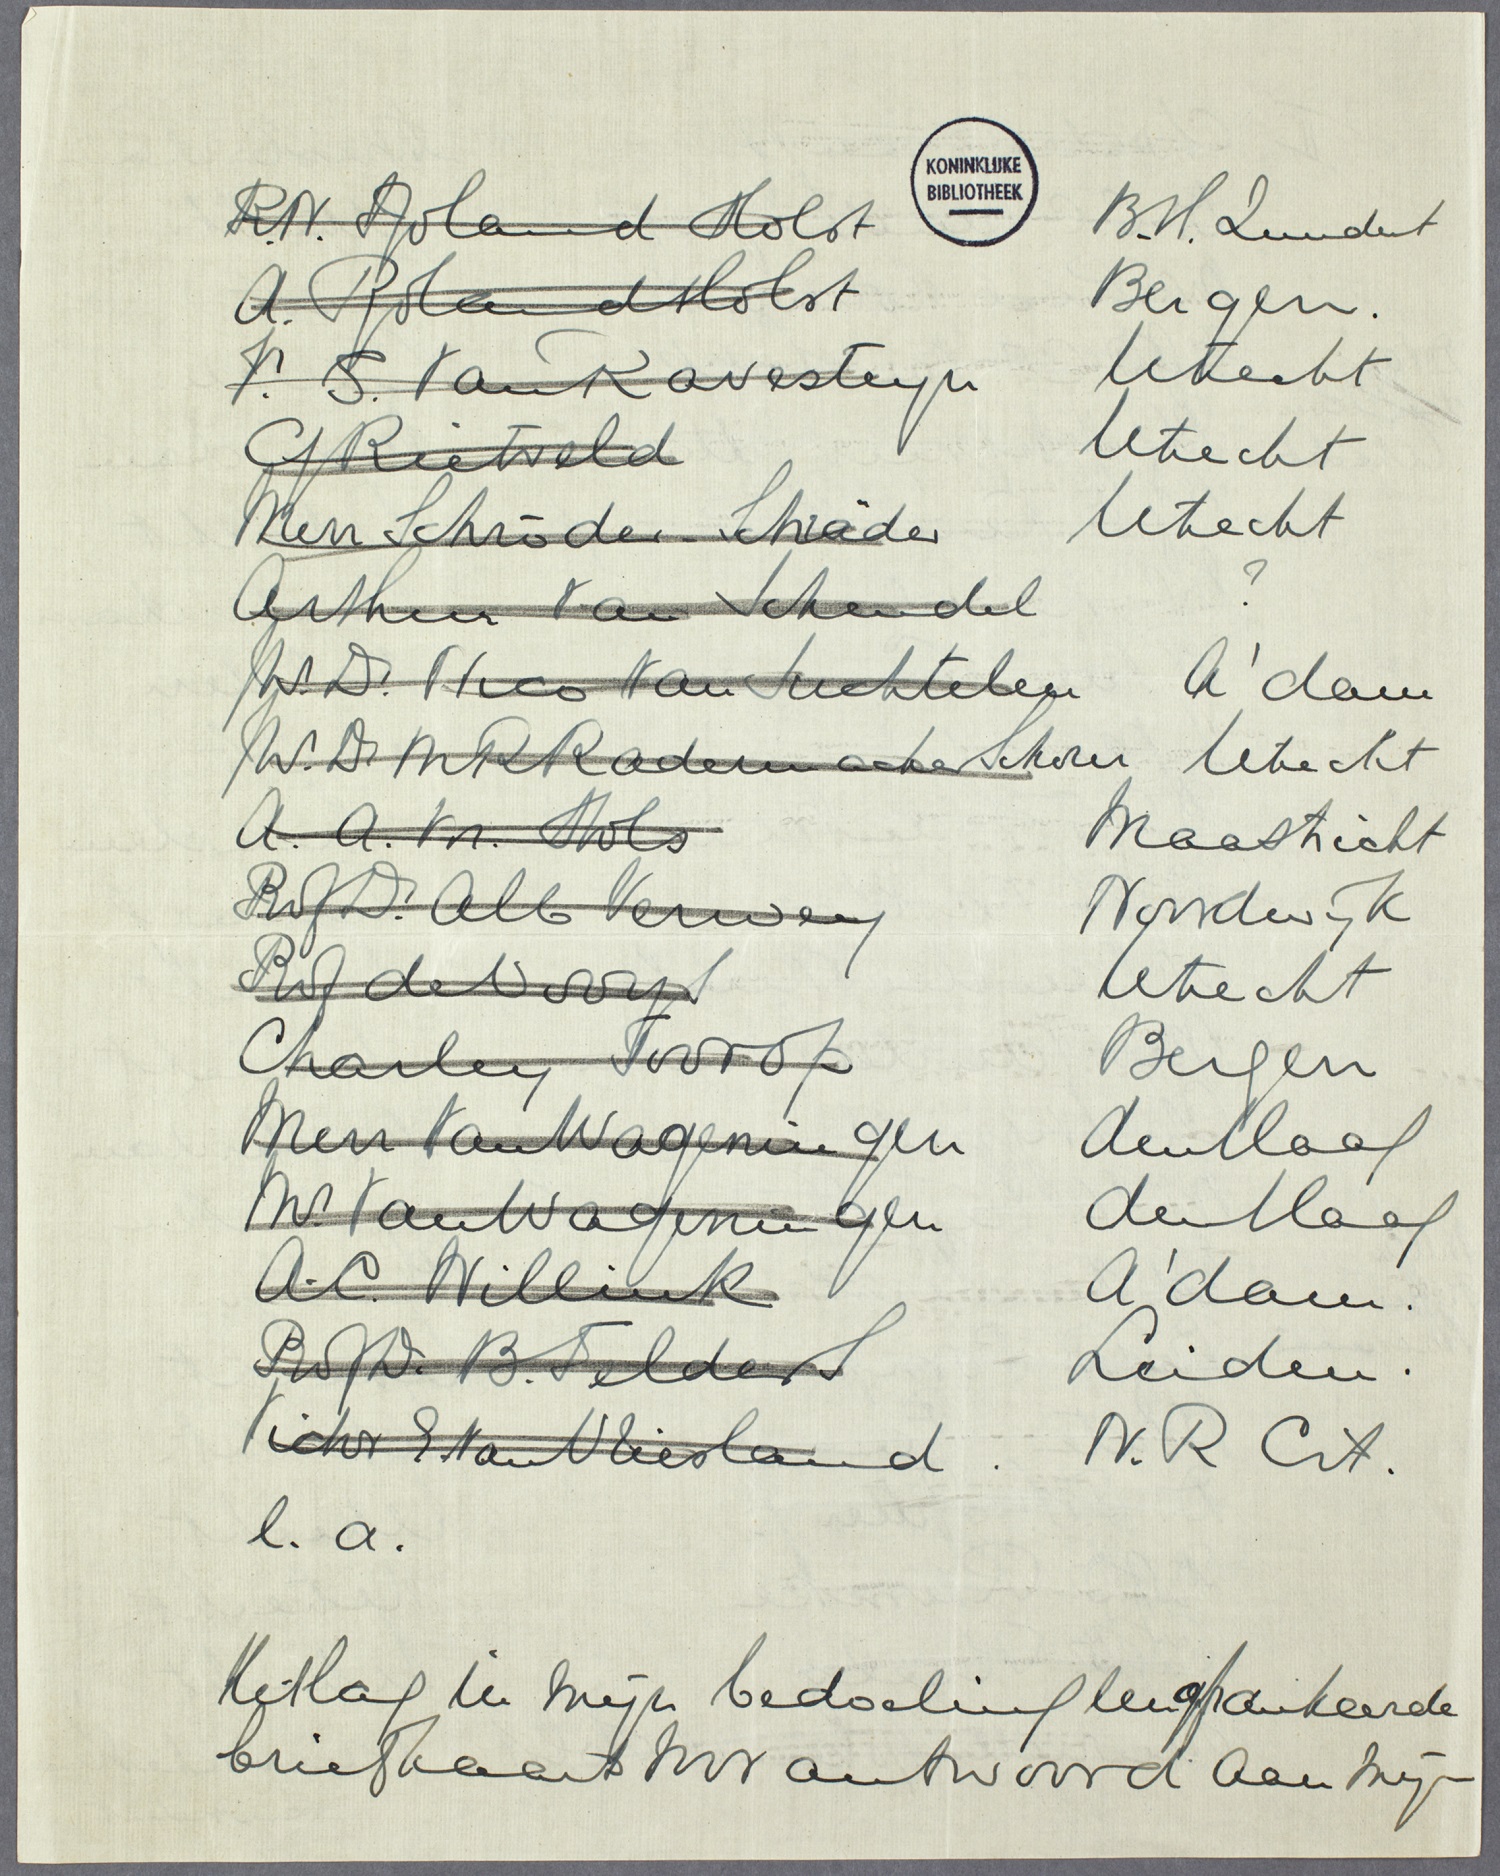 KONINKLIJKE
BIBLIOTHEEK
R.N. Roland Holst B.H. Zundert
A. Roland Holst Bergen.
Ir. S. van Ravesteyn Utrecht
G Rietveld Utrecht
Mevr Schröder-Schräder Utrecht
Arthur van Schendel ?
Mr. Dr. Nico van Suchtelen A'dam
Mr. Dr M R Radermacher Schorer Utrecht
A. A. M. Stols Maastricht
Prof Dr. Alb Verwey Noordwijk
Prof de Vooys Utrecht
Charley Toorop Bergen
Mevr van Wageningen den Haag
Mr. van Wageningen den Haag
A.C. Willink A'dam.
Prof Dr. B. Telders Leiden.
Victor E. van Vriesland. N. R Crt.
e. a.
Het lag in mijn bedoeling een gefrankeerde
briefkaart voor antwoord aan mijn